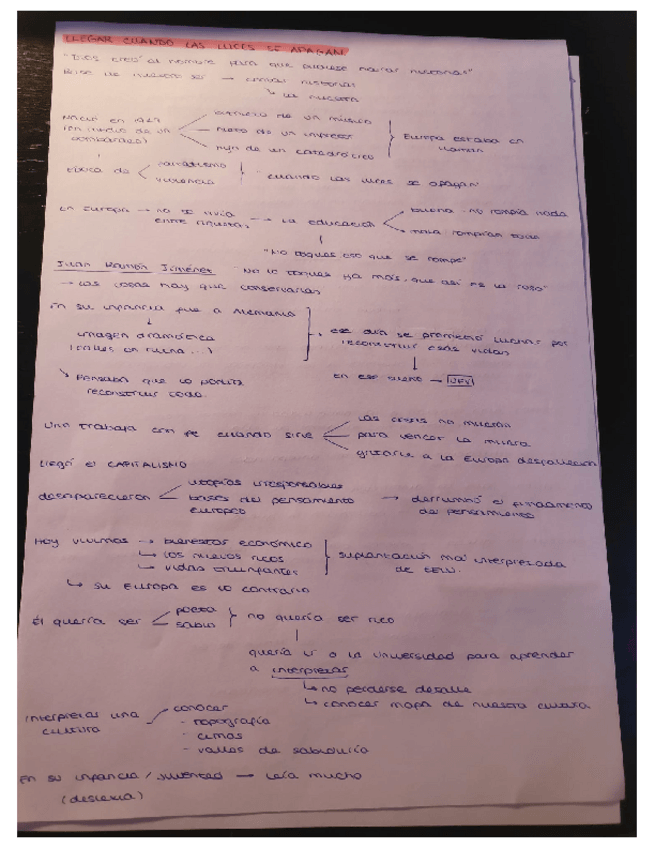 LLEGAR CUANDO LAS LUCES SE APAGAN
"Dios creó al hombre para que pudiese narrar historias"
Base de nuestro ser → contar historias
↳ la nuestra
Nació en 1947 bisnieto de un músico
(en medio de un nieto de un impresor Europa estaba en
bombardeo) hijo de un catedrático llamas
época de nihilismo
violencia "cuando las luces se apagan"
En Europa → no se vivía → la educación buena no rompía nada
entre mala rompían
"No toques eso que se rompe"
Juan Ramón Jiménez "No lo toques ya más, que así es la rosa"
→ las cosas hay que conservarlas
En su infancia fue a Alemania
↓ ese día se prometió luchar por
imagen dramática reconstruir esas vidas
(calles en ruina...) ↓
↳ Pensaban que lo podría En ese sueño → UFV
reconstruir todo.
Uno trabaja con fe cuando sirve las crisis no
para vencer la
a la Europa
Llegó el CAPITALISMO
desaparecieron utopías irresponsables
bases del pensamiento → derrumbó el fundamento
europeo del pensamiento
Hoy vivimos → bienestar económico
↳ los nuevos ricos suplantación mal interpretada
↳ vidas triunfantes de
↳ su Europa es lo contrario
Él quería ser poeta no quería ser rico
sabio
quería ir a la Universidad para aprender
a interpretar
↳ no perderse detalle
↳ conocer mapa de nuestra cultura
interpretar una conocer
cultura - topografía
- cimas
- valles de sabiduría
En su infancia / juventud → leía mucho
(dislexia)